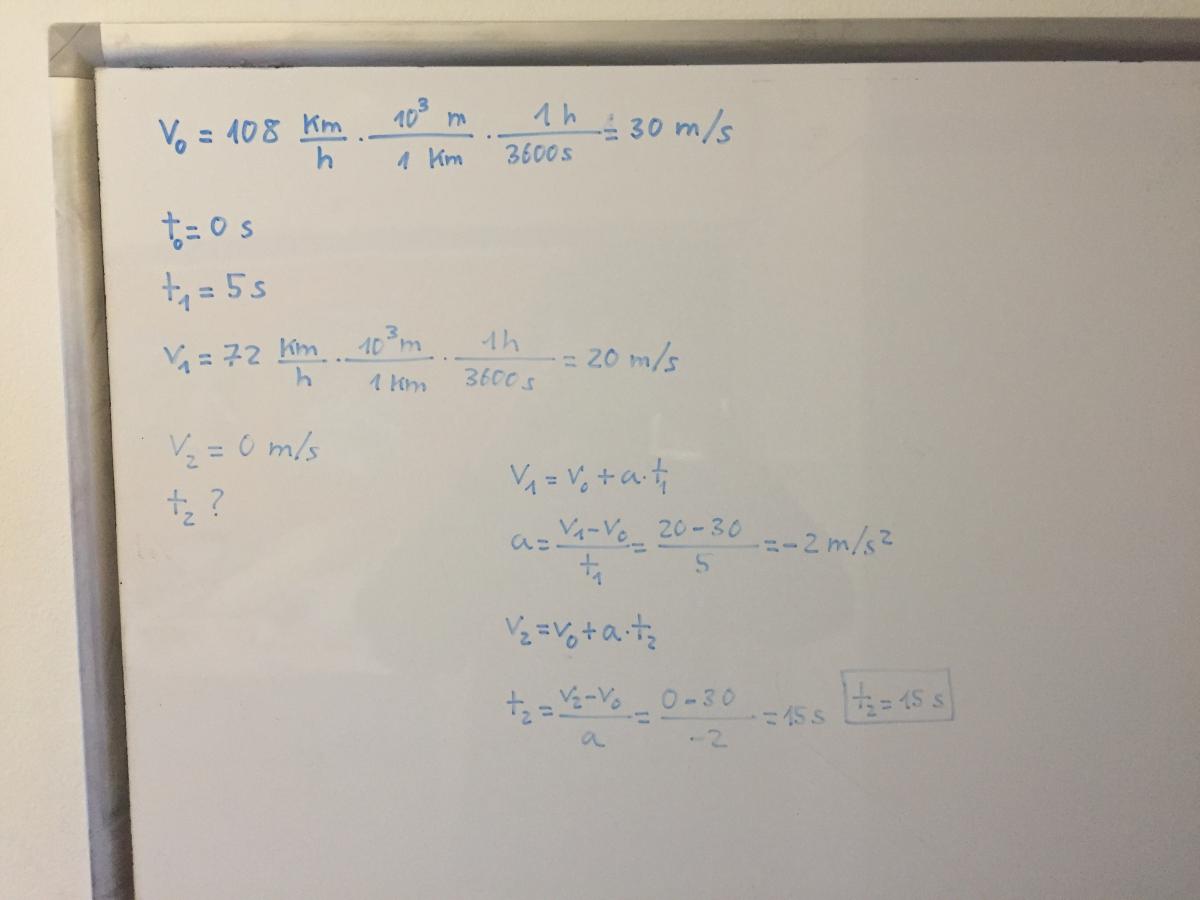 V₀ = 108 Km/h · 10³ m/1 Km · 1 h/3600 s = 30 m/s
t₀ = 0 s
t₁ = 5 s
V₁ = 72 Km/h · 10³ m/1 Km · 1 h/3600 s = 20 m/s
V₂ = 0 m/s
t₂ ?
V₁ = V₀ + a · t₁
a = V₁ - V₀/t₁ = 20 - 30/5 = -2 m/s²
V₂ = V₀ + a · t₂
t₂ = V₂ - V₀/a = 0 - 30/-2 = 15 s t₂ = 15 s